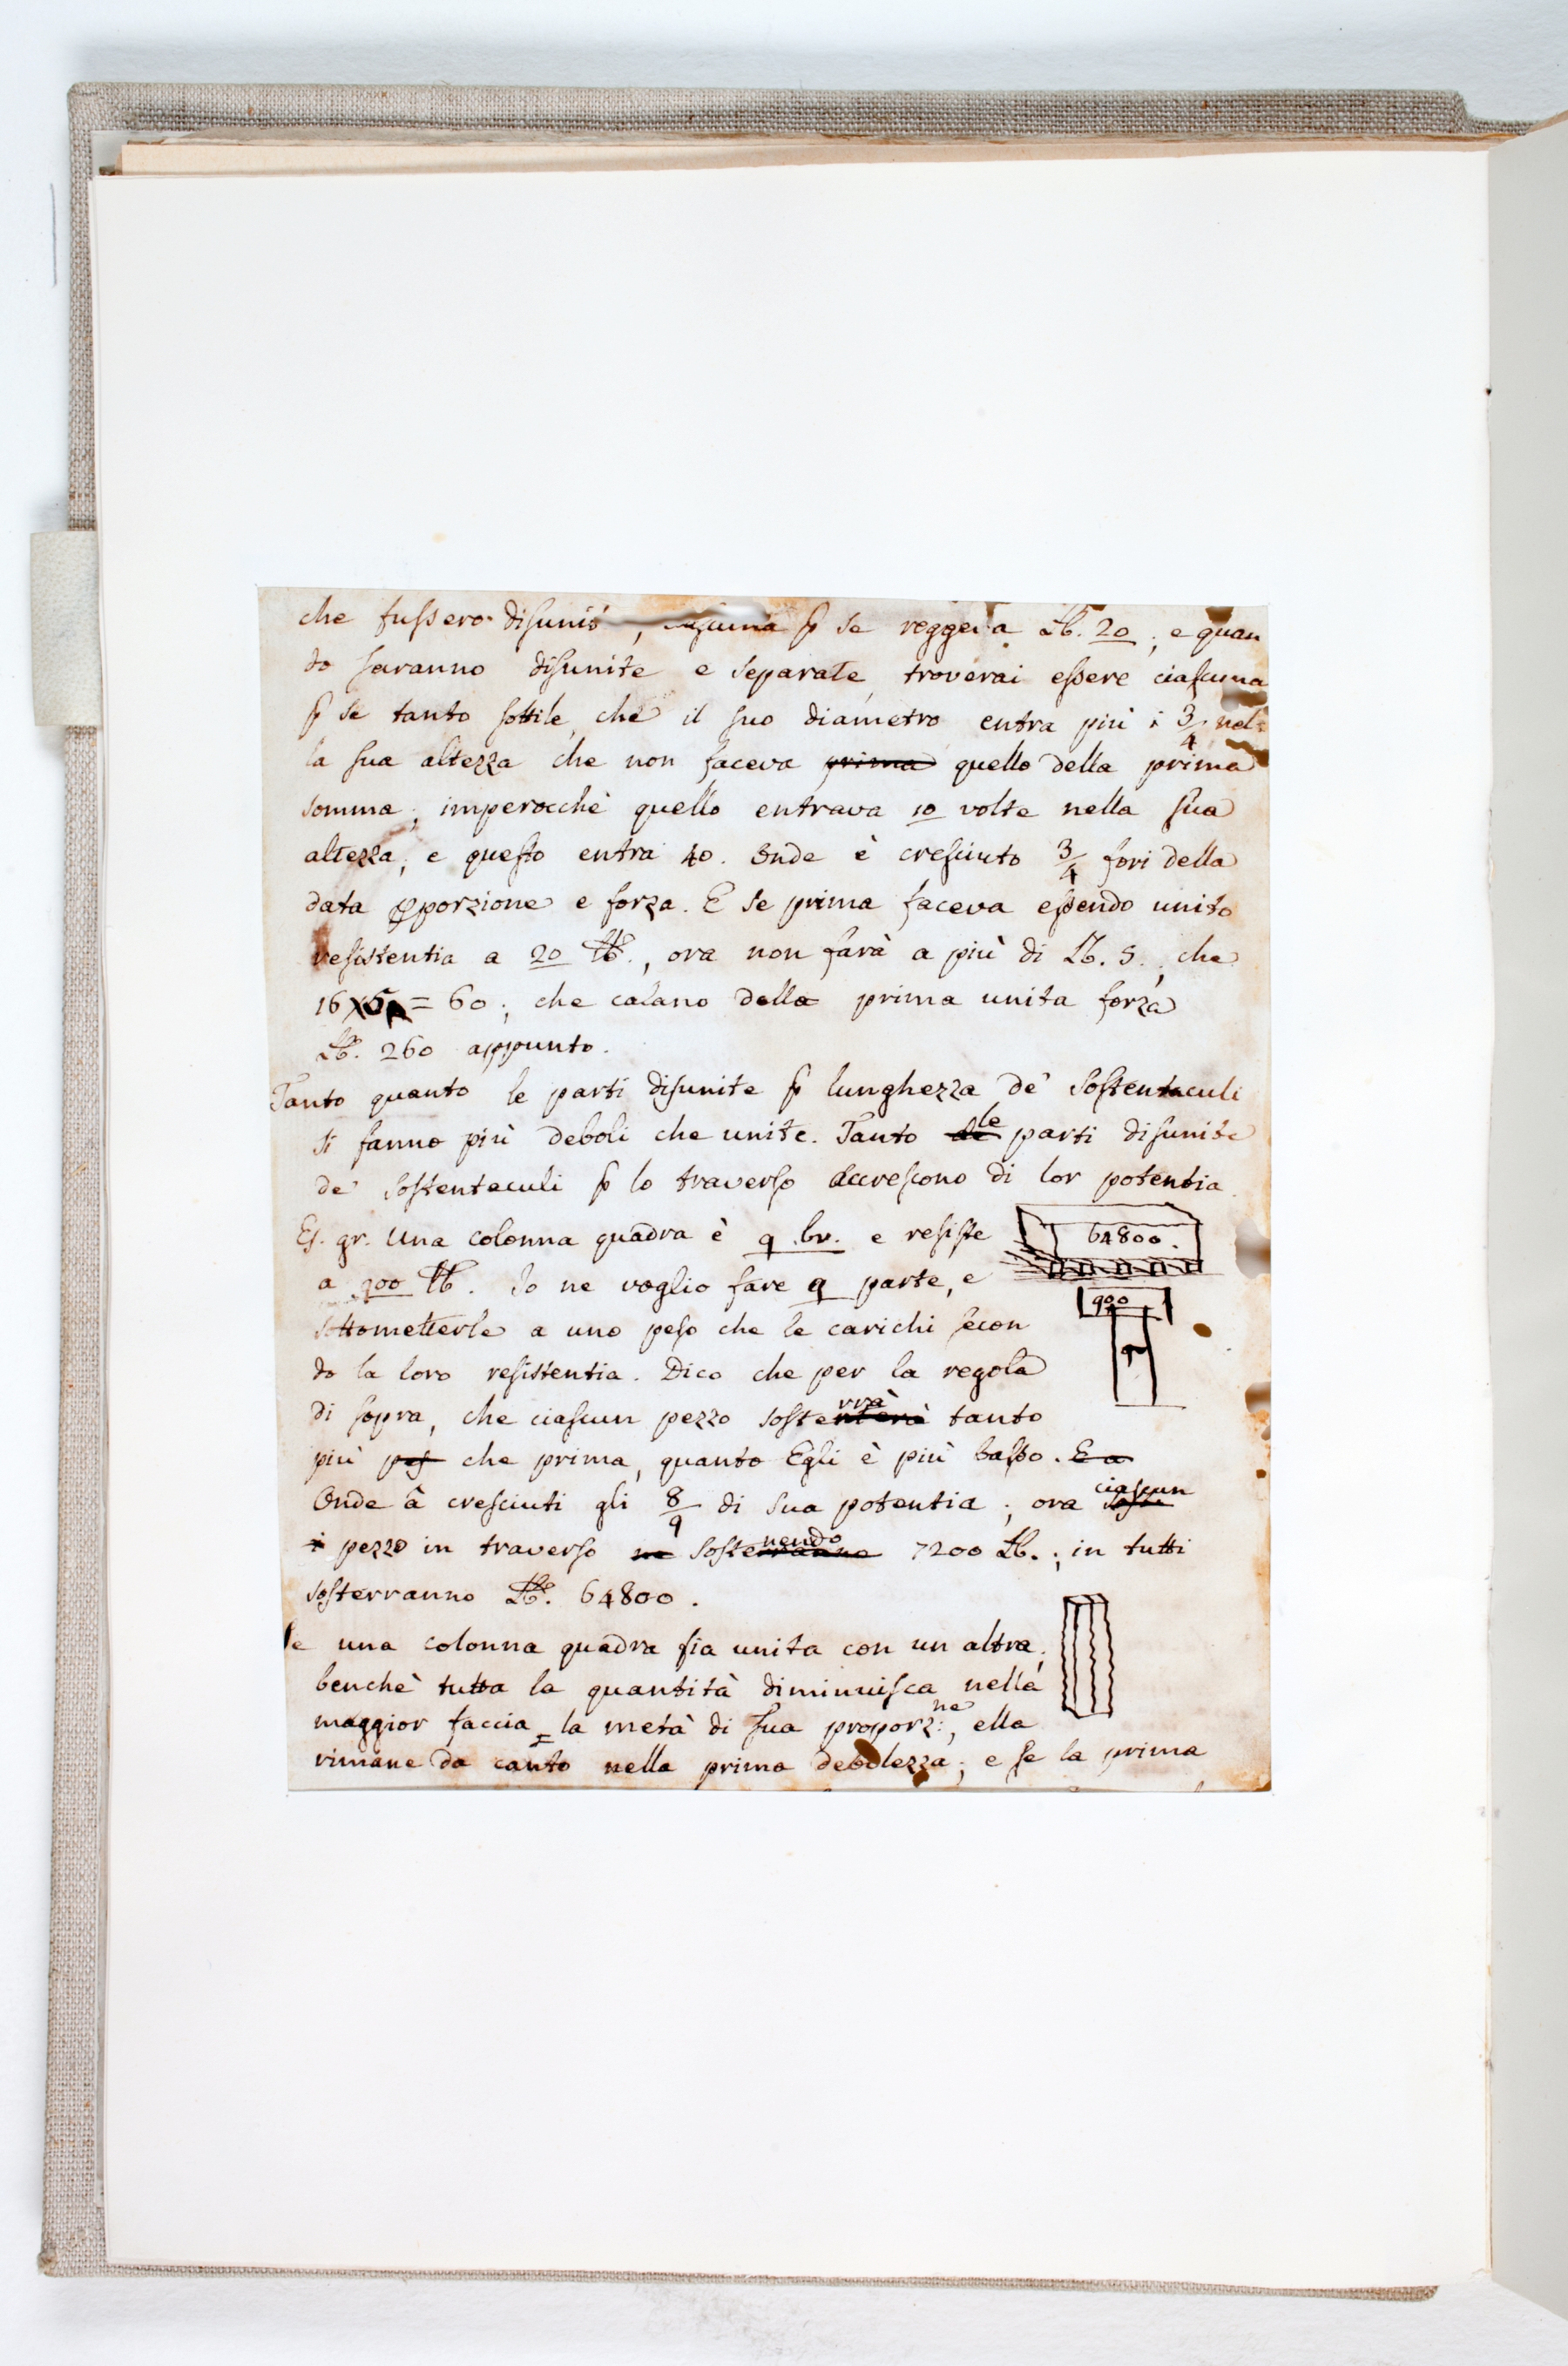 che fussero disunit , ciascuna p se reggeva Lb. 20; e quan
do saranno disunite e separate, troverai essere ciascuna
p se tanto sottile, che il suo diametro entra più i 3/4 nel=
la sua altezza che non faceva prima quello della prima
somma; imperocchè quello entrava 10 volte nella sua
altezza, e questo entra 40. Onde è cresciuto 3/4 fori della
data pporzione e forza. E se prima faceva essendo unito
resistentia a 20 lb., ora non farà a più di Lb. 5., che
16 x 5 = 60; che calano della prima unita forza
Lb. 260 appunto.
Tanto quanto le parti disunite p lunghezza de' sostentaculi
si fanno più deboli che unite. Tanto de le parti disunite
de' sostentaculi p lo traverso accrescono di lor potentia.
Es. gr. Una colonna quadra è 9 br. e resiste
64800.
a 900 lb. Io ne voglio fare 9 parte, e
900
sottometterle a uno peso che le carichi secon
9
do la loro resistentia. Dico che per la regola
di sopra, che ciascun pezzo sostenterà rrà tanto
più pes che prima, quanto Egli è più basso. E a
Onde â cresciuti gli 8/9 di sua potentia; ora soste ciascun
i pezzo in traverso ne sosterranno nendo 7200 Lb.; in tutti
sosterranno Lb. 64800.
Se una colonna quadra sia unita con un altra;
benchè tutta la quantità diminuisca nella
maggior faccia = la metà di sua proporz:ne, ella
rimane da canto nella prima debolezza; e se la prima